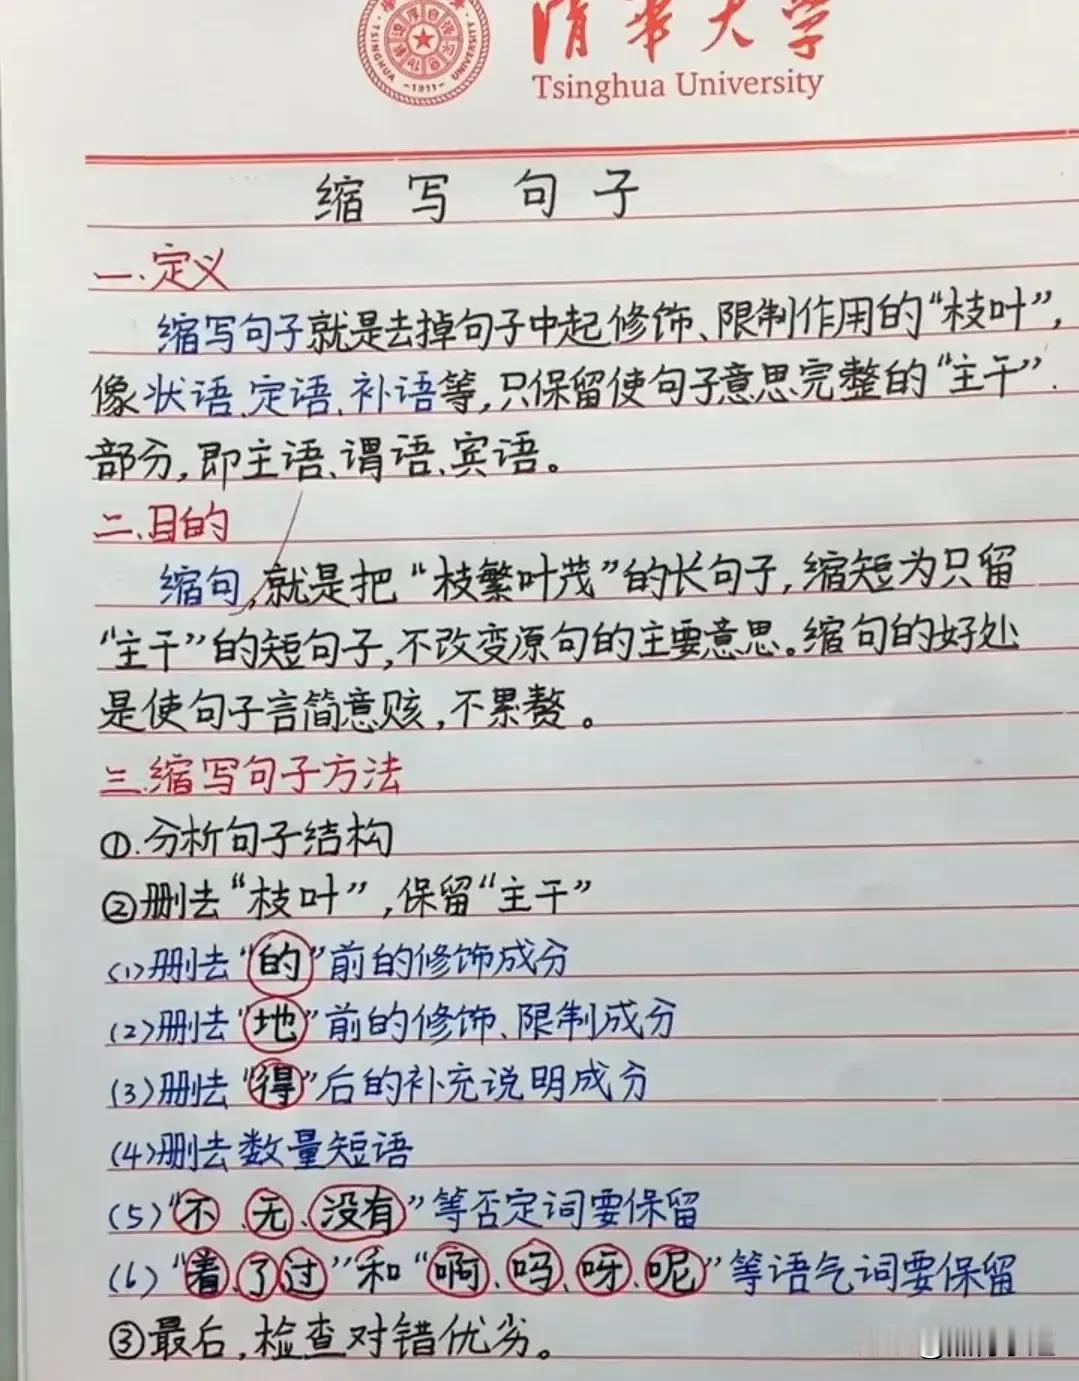 清华大学
TSINGHUA UNIVERSITY
-1911-
Tsinghua University
缩写句子
一.定义
缩写句子就是去掉句子中起修饰、限制作用的“枝叶”,
像状语、定语、补语等,只保留使句子意思完整的“主干”
部分,即主语、谓语、宾语。
二、目的
缩句,就是把“枝繁叶茂”的长句子,缩短为只留
“主干”的短句子,不改变原句的主要意思。缩句的好处
是使句子言简意赅,不累赘。
三.缩写句子方法
①.分析句子结构
②删去“枝叶”,保留“主干”
(1)删去“的”前的修饰成分
(2)删去“地”前的修饰、限制成分
(3)删去“得”后的补充说明成分
(4)删去数量短语
(5)“不、无、没有”等否定词要保留
(6)“着、了、过”和“啊、吗、呀、呢”等语气词要保留
③最后,检查对错优劣。